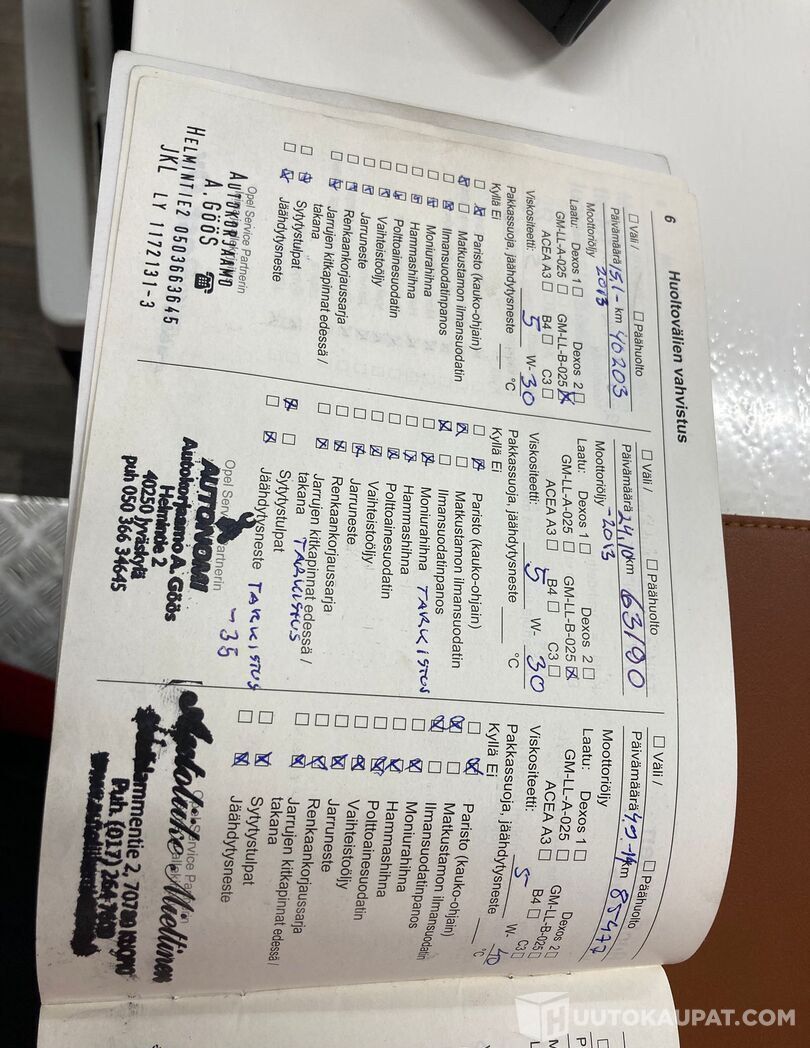 6
Huoltovälien vahvistus
☐ Väli / ☐ Päähuolto
Päivämäärä 15.1- km 40203
2013
Moottoriöljy
Laatu: Dexos 1 ☐ Dexos 2 ☐
GM-LL-A-025 ☐ GM-LL-B-025 ☒
ACEA A3 ☐ B4 ☐ C3 ☐
Viskositeetti: 5 W- 30
Pakkassuoja, jäähdytysneste ___ °C
Kyllä Ei
☐ ☒ Paristo (kauko-ohjain)
☒ ☐ Matkustamon ilmansuodatin
☐ ☒ Ilmansuodatinpanos
☐ ☒ Moniurahihna
☐ ☒ Hammashihna
☐ ☒ Polttoainesuodatin
☐ ☒ Vaihteistoöljy
☐ ☒ Jarruneste
☐ ☒ Renkaankorjaussarja
☐ ☒ Jarrujen kitkapinnat edessä /
takana
☐ ☒ Sytytystulpat
☐ ☒ Jäähdytysneste
Opel Service Partnerin
AUTOKORJAAMO
A. GÖÖS ☎
HELMINTIE2 0503663645
JKL LY 1172131-3
☐ Väli / ☐ Päähuolto
Päivämäärä 24.10 km 63190
-2013
Moottoriöljy
Laatu: Dexos 1 ☐ Dexos 2 ☐
GM-LL-A-025 ☐ GM-LL-B-025 ☒
ACEA A3 ☐ B4 ☐ C3 ☐
Viskositeetti: 5 W- 30
Pakkassuoja, jäähdytysneste ___ °C
Kyllä Ei
☐ ☒ Paristo (kauko-ohjain)
☒ ☐ Matkustamon ilmansuodatin
☒ ☐ Ilmansuodatinpanos
☐ ☒ Moniurahihna TARKISTUS
☐ ☒ Hammashihna
☐ ☒ Polttoainesuodatin
☐ ☒ Vaihteistoöljy
☐ ☒ Jarruneste
☐ ☒ Renkaankorjaussarja
☐ ☒ Jarrujen kitkapinnat edessä /
takana TARKISTUS
☒ ☐ Sytytystulpat
☐ ☒ Jäähdytysneste TARKISTUS
-35
Opel Service Partnerin
AUTONOMI
Autokorjaamo A. Göös
Helmintie 2
40250 Jyväskylä
puh 050 366 34645
☐ Väli / ☐ Päähuolto
Päivämäärä 4.9.-14 km 85477
Moottoriöljy
Laatu: Dexos 1 ☐ Dexos 2 ☐
GM-LL-A-025 ☐ GM-LL-B-025 ☐
ACEA A3 ☐ B4 ☐ C3 ☐
Viskositeetti: 5 W- 40
Pakkassuoja, jäähdytysneste ___ °C
Kyllä Ei
☐ ☒ Paristo (kauko-ohjain)
☒ ☐ Matkustamon ilmansuodatin
☒ ☐ Ilmansuodatinpanos
☐ ☒ Moniurahihna
☐ ☒ Hammashihna
☐ ☒ Polttoainesuodatin
☐ ☒ Vaihteistoöljy
☐ ☒ Jarruneste
☐ ☒ Renkaankorjaussarja
☐ ☒ Jarrujen kitkapinnat edessä /
takana
☐ ☒ Sytytystulpat
☐ ☒ Jäähdytysneste
Autoliike Miettinen
2, 70780
Puh. (017) 264
HUUTOKAUPAT.COM